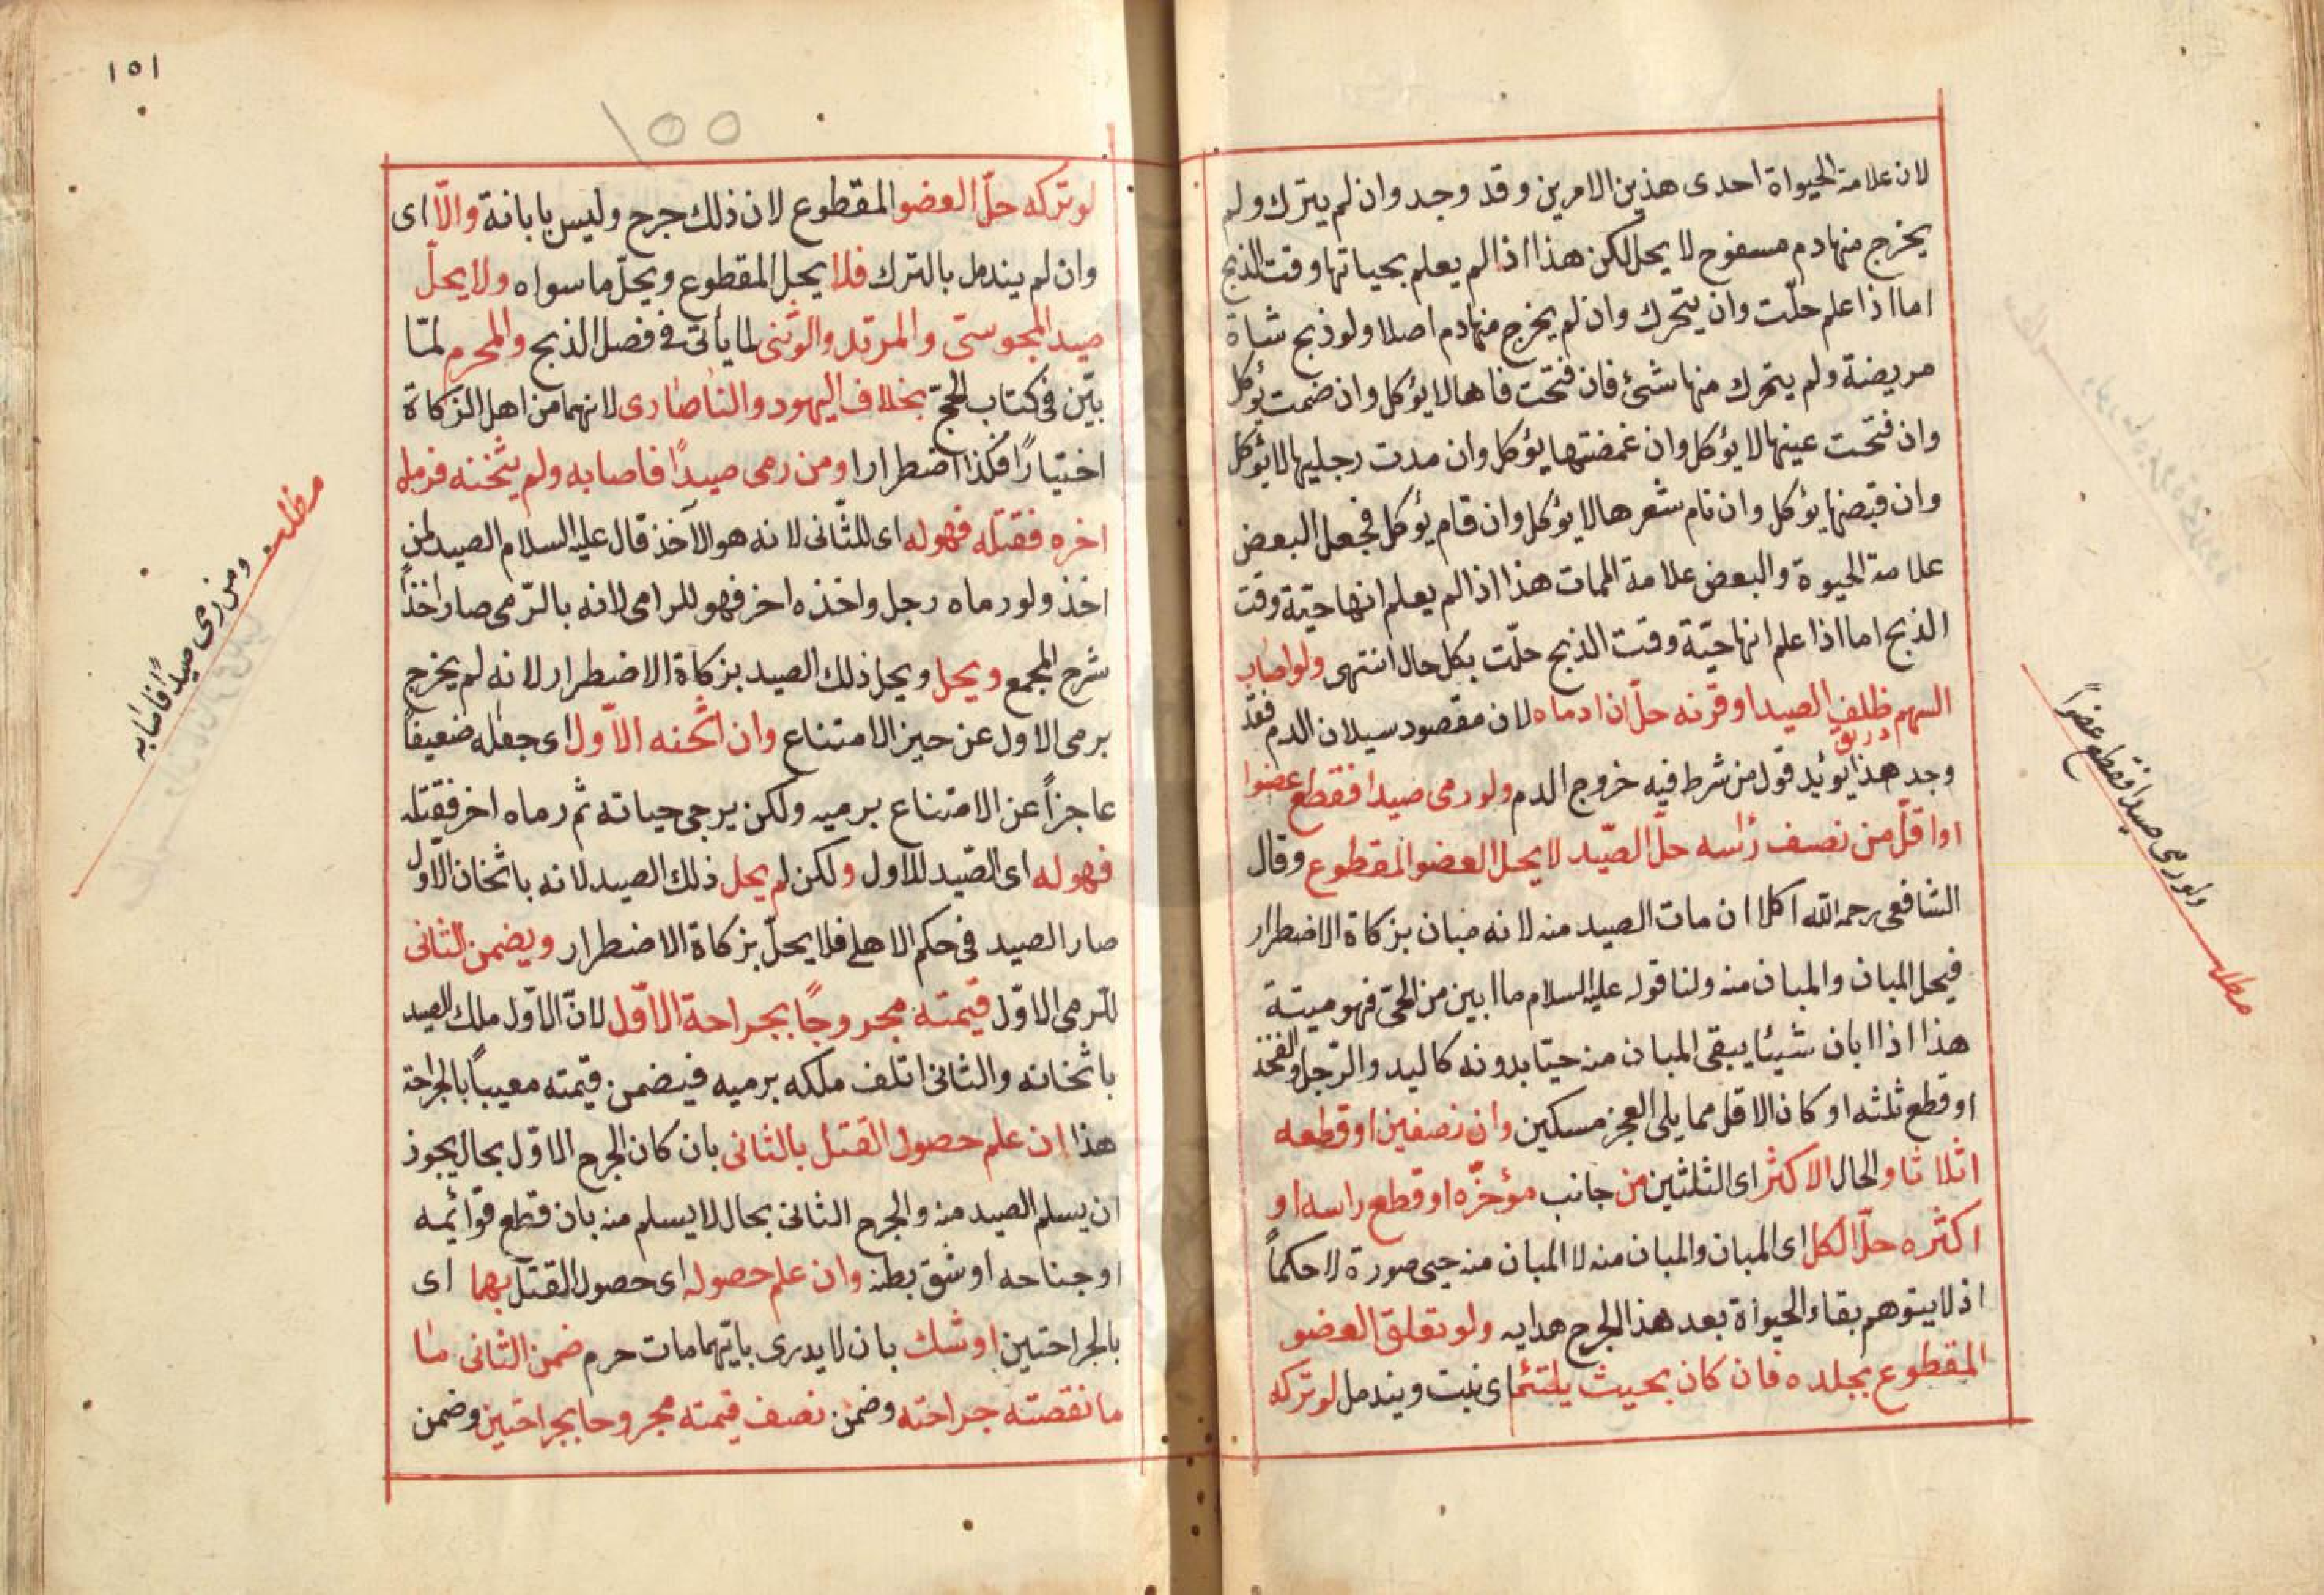 لان علامة الحيواة احدى هذين الامرين وقد وجد وان لم يتحرك ولم
يخرج منها دم مسفوح لا يحل لكن هذا اذا لم يعلم بحياتها وقت الذبح
اما اذا علم حلّت وان يتحرك وان لم يخرج منها دم اصلا ولو ذبح شاة
مريضة ولم يتحرك منها شئ فان فتحت فاها لا يؤكل وان ضمت يؤكل
وان فتحت عينها لا يؤكل وان غمضتها يؤكل وان مدت رجليها لا يؤكل
وان قبضها يؤكل وان نام شعرها لا يؤكل وان قام يؤكل فجعل البعض
علامة الحيوة والبعض علامة الممات هذا اذا لم يعلم انها حيّة وقت
الذبح اما اذا علم انها حيّة وقت الذبح حلّت بكل حال انتهى ولو اصاب
السهم ظلف الصيد او قرنه حلّ ان ادماه لان مقصود سيلان الدم فقد
وجد هذا يوئيد قول من شرط فيه خروج الدم ولو رمى صيدا فقطع عضوا
او اقلّ من نصف رأسه حلّ الصّيد لا يحل العضو المقطوع وقال
الشافعى رحمه الله اكلا ان مات الصيد منه لانه مبان بزكاة الاضطرار
فيحل المبان والمبان منه ولنا قوله عليه السلام ما ابين من الحىّ فهو ميتة
هذا اذا ابان شيئا يبقى المبان منه حيّا بدونه كاليد والرّجل والفخذ
او قطع ثلثه او كان الاقل مما يلى العجز مسكين وان نصفين او قطعه
اثلاثا والحال الاكثر اى الثلثين من جانب مؤخّره او قطع راسه او
اكثره حلّ الكل اى المبان والمبان منه لا المبان منه حيى صورة لا حكماً
اذ لا يتوهم بقاء الحيواة بعد هذا الجرح هدايه ولو تعلق العضو
المقطوع بجلده فان كان بحيث يلتئم اى ينبت ويندمل لو تركه
مطلب ولو رمى صيدا فقطع عضواً
١٥١
١٥٥
لو تركه حلّ العضو المقطوع لان ذلك جرح وليس بابانة والّا اى
وان لم يندمل بالترك فلا يحل المقطوع ويحلّ ما سواه ولا يحلّ
صيد المجوسىّ والمرتد والوثنى لما يأتى فى فصل الذبح والمحرم لمّا
بيّن فى كتاب الحجّ بخلاف اليهود والناصارى لانهما من اهل الزكاة
اختيارًا فكذا اضطرارا ومن رمى صيدًا فاصابه ولم يثخنه فرماه
اخره فقتله فهو له اى للثّانى لانه هو الآخذ قال عليه السلام الصيد لمن
اخذ ولو رماه رجل واخذه اخر فهو للرامى لانه بالرّمى صار اخذاً
شرح المجمع ويحل ويحل ذلك الصيد بزكاة الاضطرار لانه لم يخرج
برمى الاول عن حيز الامتناع وان اثخنه الاّول اى جعله ضعيفاً
عاجزاً عن الامتناع برميه ولكن يرجى حياته ثم رماه اخر فقتله
فهو له اى الصّيد للاول ولكن لم يحل ذلك الصيد لانه باثخان الاّول
صار الصيد فى حكم الاهلى فلا يحلّ بزكاة الاضطرار ويضمن الثانى
للرمى الاوّل قيمته مجروحًا بجراحة الاوّل لانّ الاوّل ملك الصيد
باثخانه والثانى اتلف ملكه برميه فيضمن قيمته معيباً بالجراحة
هذا ان علم حصول القتل بالثانى بان كان الجرح الاوّل بحال يجوز
ان يسلم الصيد منه والجرح الثانى بحال لا يسلم منه بان قطع قوائمه
او جناحه او شق بطنه وان علم حصوله اى حصول القتل بهما اى
بالجراحتين او شك بان لا يدرى بايّهما مات حرم ضمن الثانى ما
ما نقصته جراحته وضمن نصف قيمته مجروحا بجراحتين وضمن
مطلب ومن رمى صيداً فاصابه